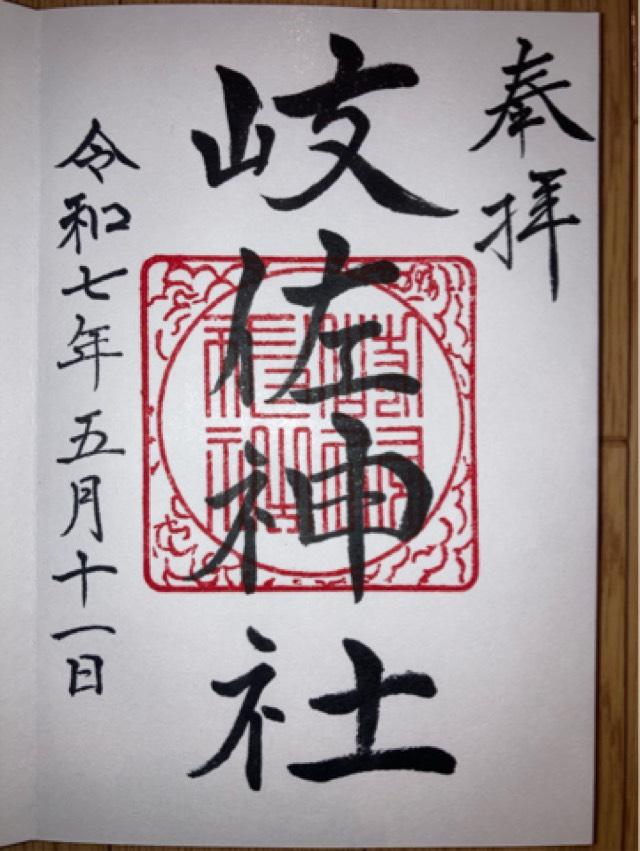 奉拝
岐佐神社
令和七年五月十一日